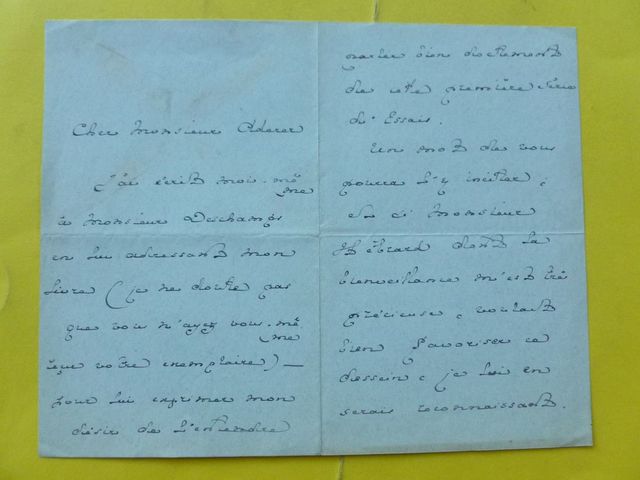 Cher Monsieur Aderer
J'ai écrit moi-mê
me
à Monsieur Deschamps
en lui adressant mon
livre (je ne doute pas
que vous n'ayez vous-mê
me
reçu votre exemplaire) —
pour lui exprimer mon
désir de l'entendre
parler bien
de cette première série
d'Essais.
Un mot de vous
pourra l'y inciter,
et si Monsieur
Hébrard dont la
bienveillance m'est trè
précieuse, voulait
bien favoriser ce
dessein, je lui en
serais reconnaissant.